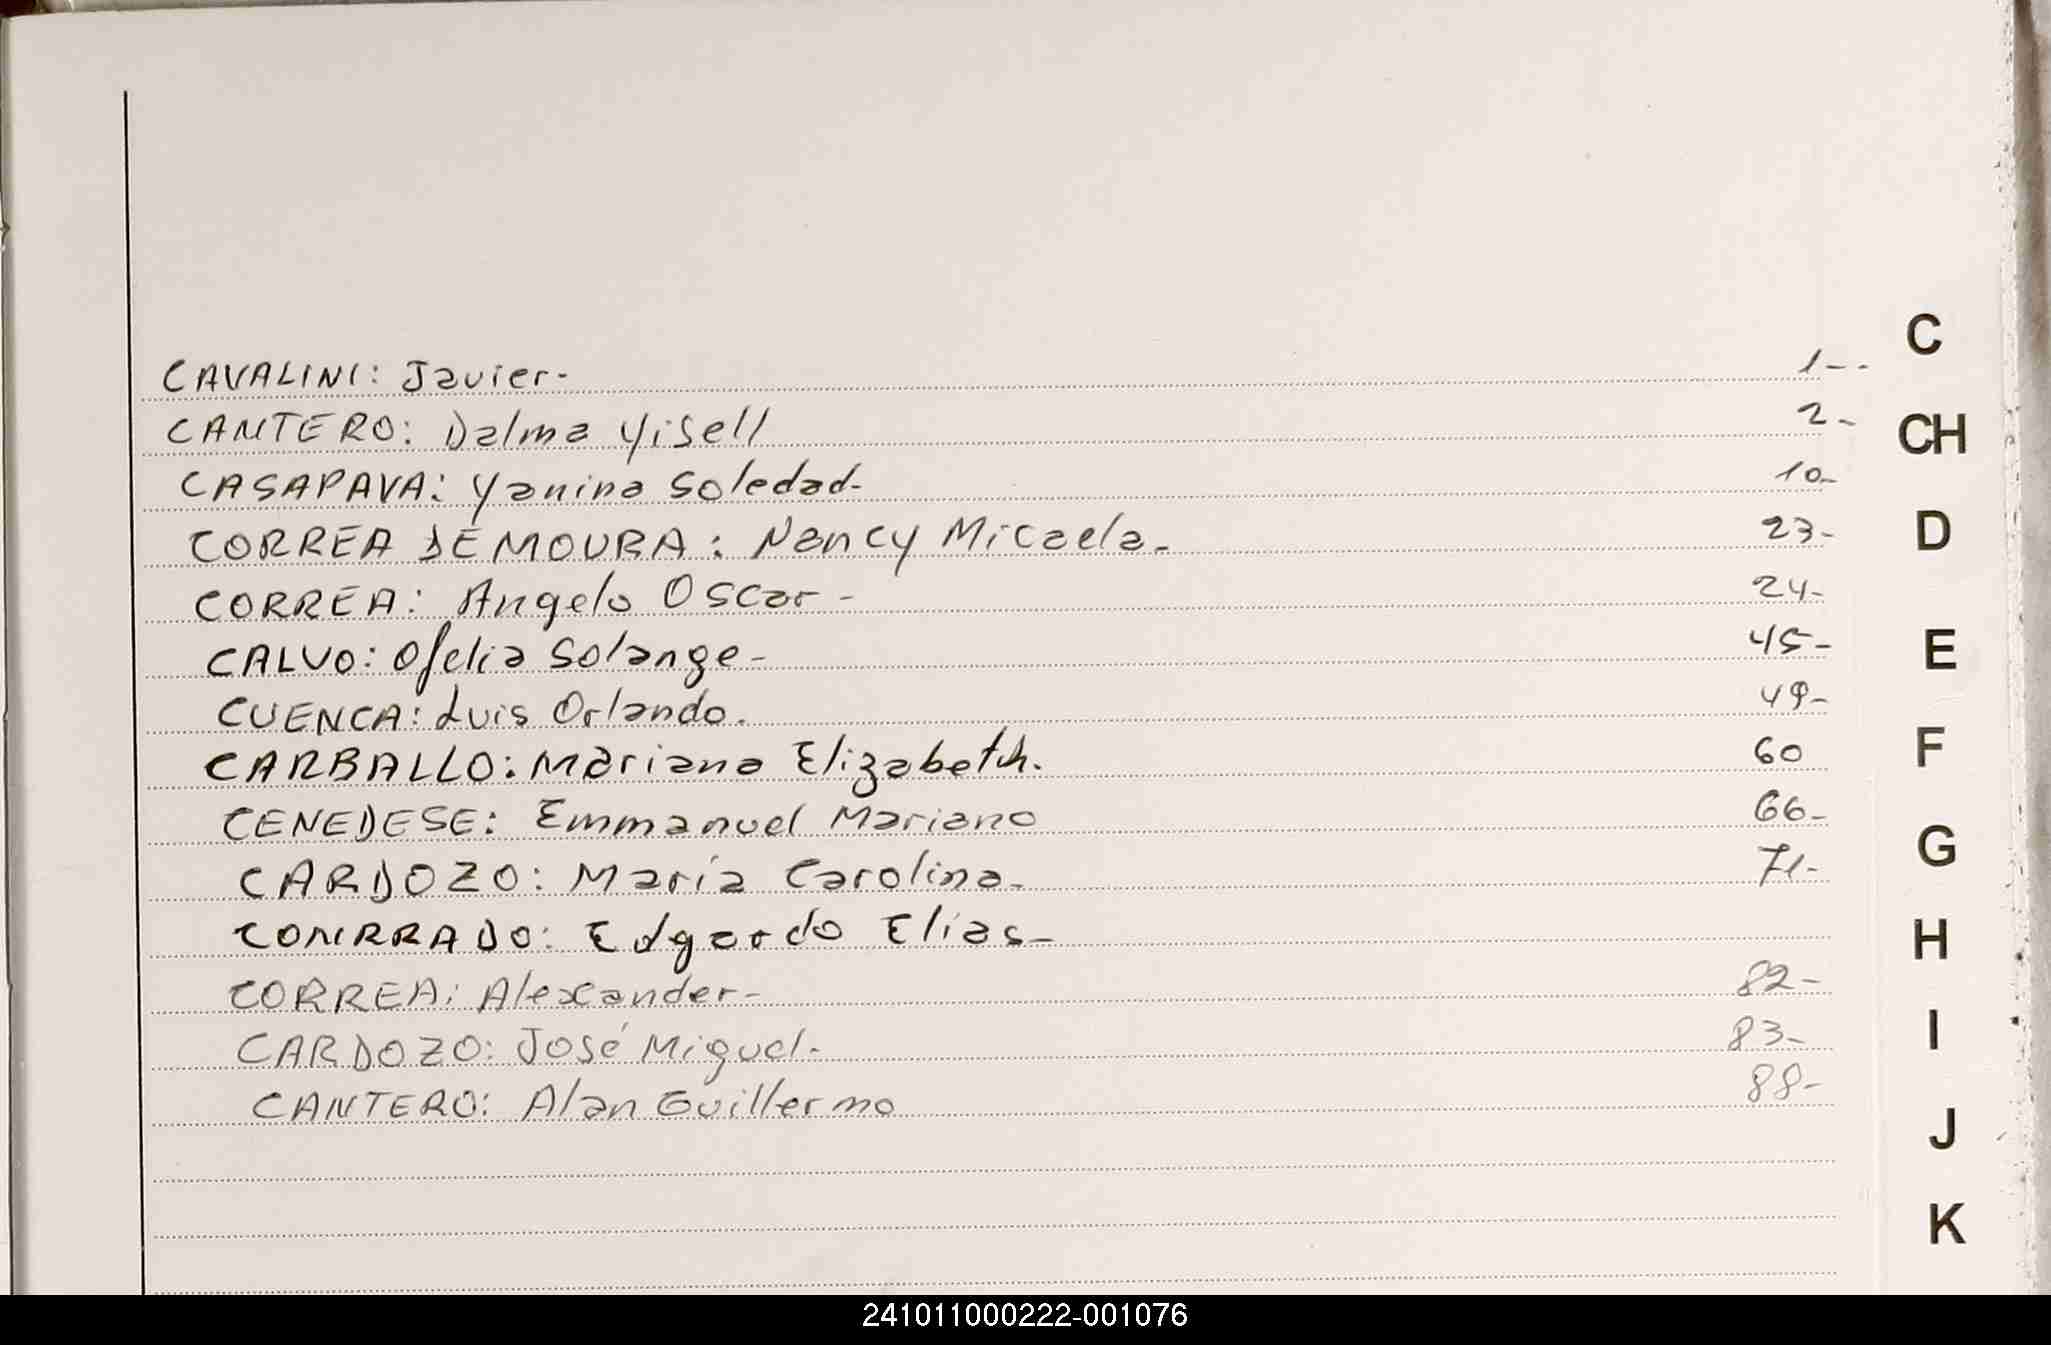 CAVALINI: Javier- 1--
CANTERO: Dalma Yisell 2-
CASAPAVA: Yanina Soledad- 10-
CORREA DE MOURA: Nancy Micaela- 23-
CORREA: Angelo Oscar- 24-
CALVO: Ofelia Solange- 45-
CUENCA: Luis Orlando. 49-
CARBALLO: Mariana Elizabeth. 60
CENEDESE: Emmanuel Mariano 66-
CARDOZO: María Carolina- 71-
CONRRADO: Edgardo Elias-
CORREA: Alexander- 82-
CARDOZO: José Miguel- 83-
CANTERO: Alan Guillermo 88-
C
CH
D
E
F
G
H
I
J
K
241011000222-001076